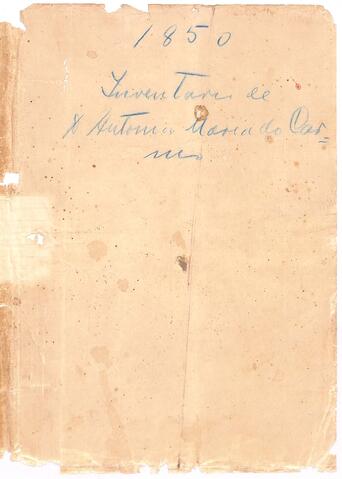 1850
Inventario de
D Antonia Maria do Car=
mo